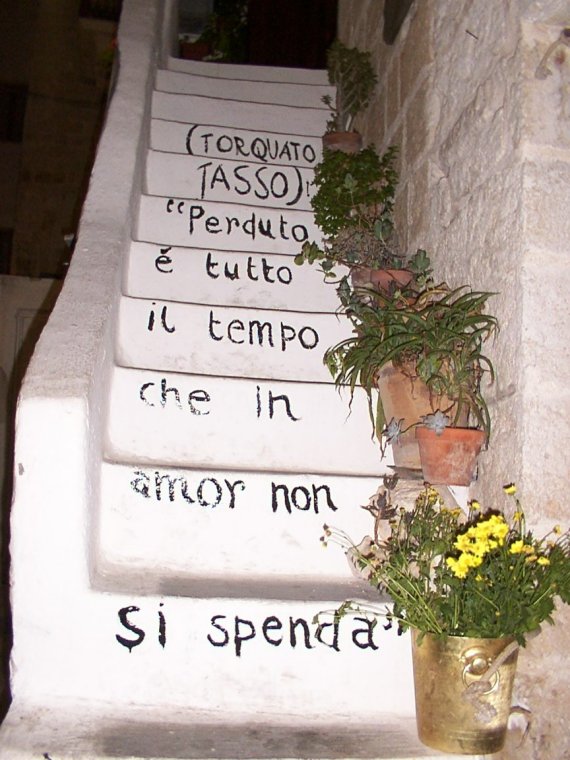 (TORQUATO
TASSO)
“Perduto
é tutto
il tempo
che in
amor non
si spenda”